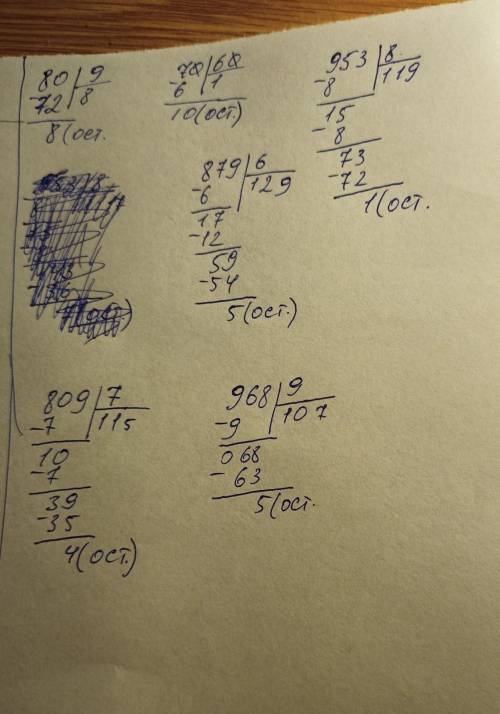 80 | 9
-72 | 8
8(ост.
70 | 60
-6 | 1
10(ост.)
953 | 8
-8 | 119
15
-8
73
-72
1(ост.
879 | 6
-6 | 129
17
-12
59
-54
5(ост.)
809 | 7
-7 | 115
10
-7
39
-35
4(ост.)
968 | 9
-9 | 107
068
-63
5(ост.